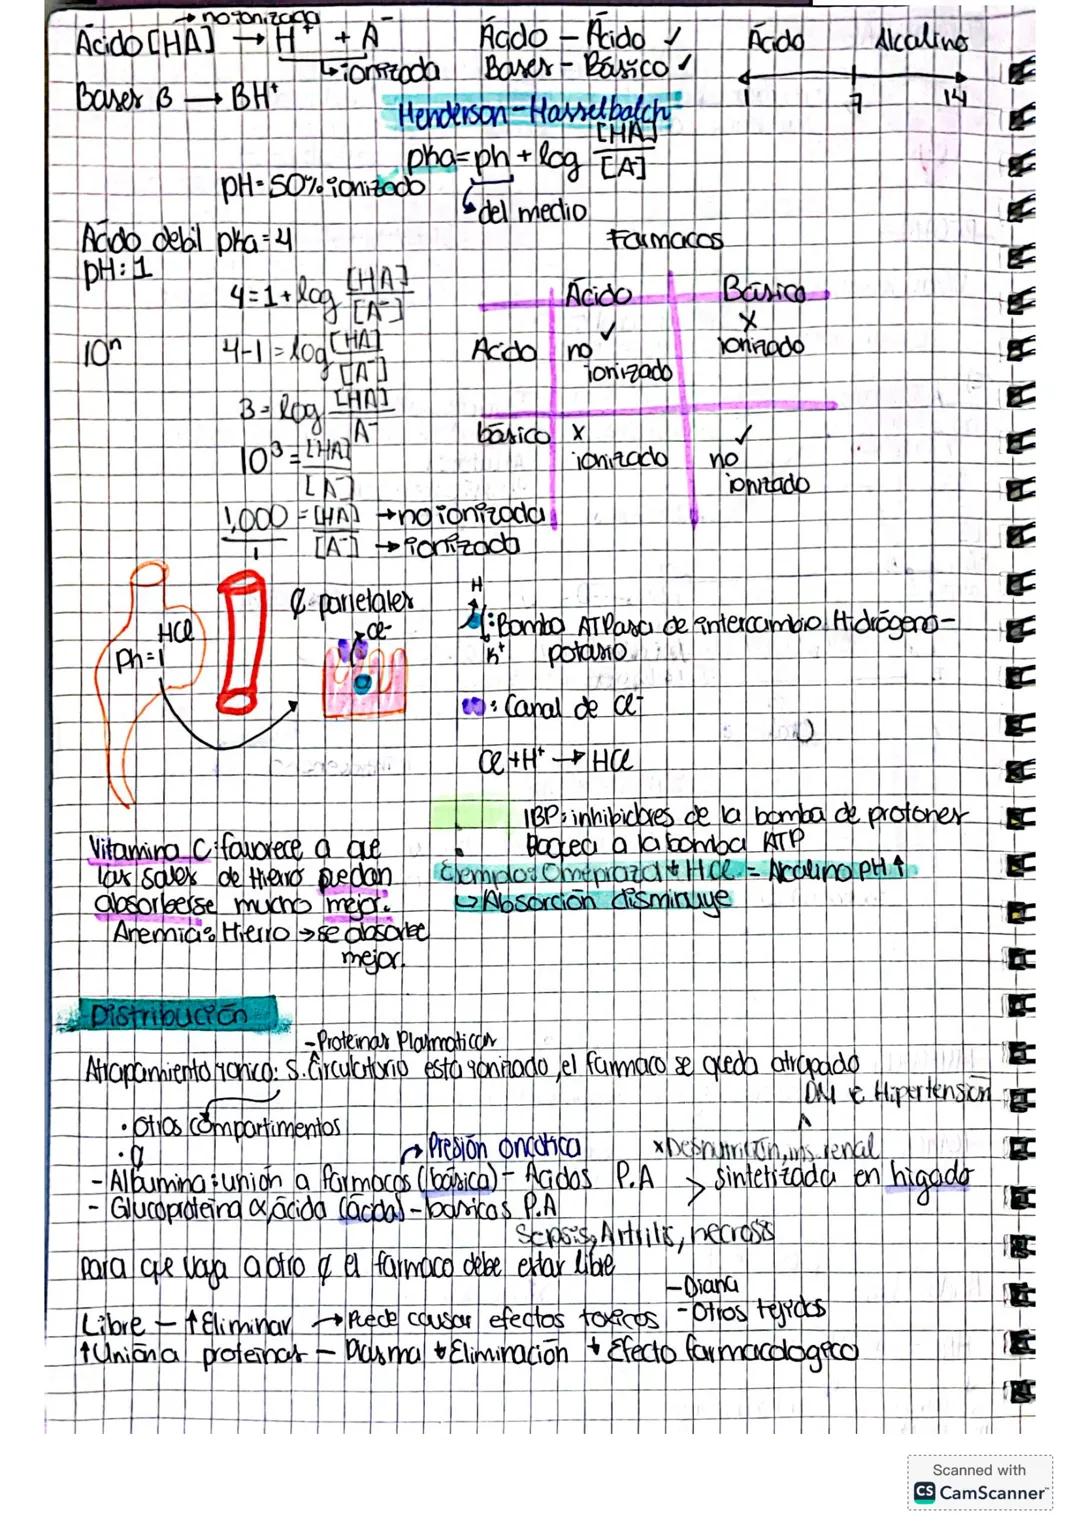 → no ionizada
Ácido [HA] → H⁺ + A⁻
↳ionizada
Bases B → BH⁺
Ácido - Ácido ✓
Bases - Básico ✓
Ácido Alcalino
1 7 14
Henderson-Hasselbalch
pka = ph + log [HA] / [A]
pH = 50% ionizado
del medio
Ácido debil pka = 4
pH: 1
4 = 1 + log [HA] / [A⁻]
10ⁿ
4-1 = log [HA] / [A⁻]
3 = log [HA] / A⁻
10³ = [HA] / [A⁻]
1,000 / 1 = [HA] → no ionizada
[A⁻] → ionizada
Farmacos
Ácido Básico
Acido ✓ no ionizado X ionizado
básico X ionizado ✓ no ionizado
HCl
Ph=1
₵ parietales
Cl-
H
K⁺
: Bomba ATPasa de intercambio Hidrógeno-
potasio
: Canal de Cl-
Cl + H⁺ → HCl
IBP: inhibidores de la bomba de protones
Boqea a la bomba ATP
Ejemplo: Omeprazol + HCl = Alcalino pH ↑
↳ Absorción disminuye
Vitamina C: favorece a que
las sales de Hierro puedan
absorberse mucho mejor.
Anemia: Hierro → se absorbe
mejor.
Distribución
- Proteinas Plasmaticas
Atrapamiento ionico: S. Circulatorio está ionizado, el farmaco se queda atrapado
DM e Hipertensión
• Otros compartimentos
• ₵
→ Presión oncotica
x Desnutrición, ins. renal
- Albumina: unión a farmacos (básica) - Ácidos P.A > sintetizada en higado
- Glucoproteina α, ácida (ácidas) - basicos P.A
Sepsis, Artritis, necrosis
Para que vaya a otro ₵ el farmaco debe estar libre
- Diana
Libre - ↑ Eliminar → Puede causar efectos toxicos - Otros tejidos
↑ Union a proteinas - Plasma ↓ Eliminación ↓ Efecto farmacologico
Scanned with
CS CamScanner